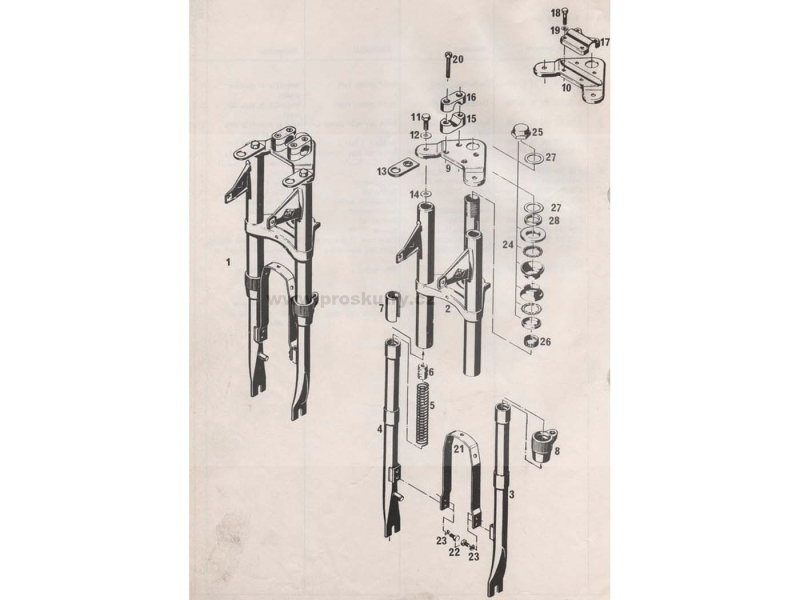 18
19
17
10
20
16
15
11
12
9
13
14
25
27
27
28
24
26
1
2
7
www.proskutry.cz
6
5
4
21
8
3
23
22
23